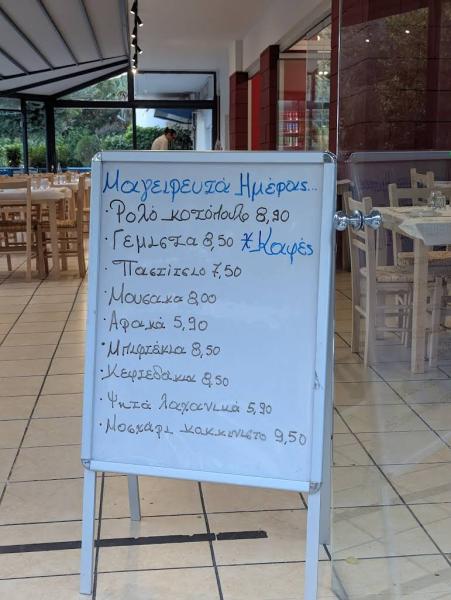 Μαγειρευτά Ημέρας...
· Ρολό κοτόπουλο 8,90
· Γεμιστα 8,50 % Καφές
· Παστίτσιο 7,50
· Μουσακα 8,00
· Αρακά 5,90
· Μπιφτέκια 8,50
· Κεφτεδάκια 8,50
· Ψητά λαχανικά 5,90
· Μοσχάρι κοκκινιστο 9,50